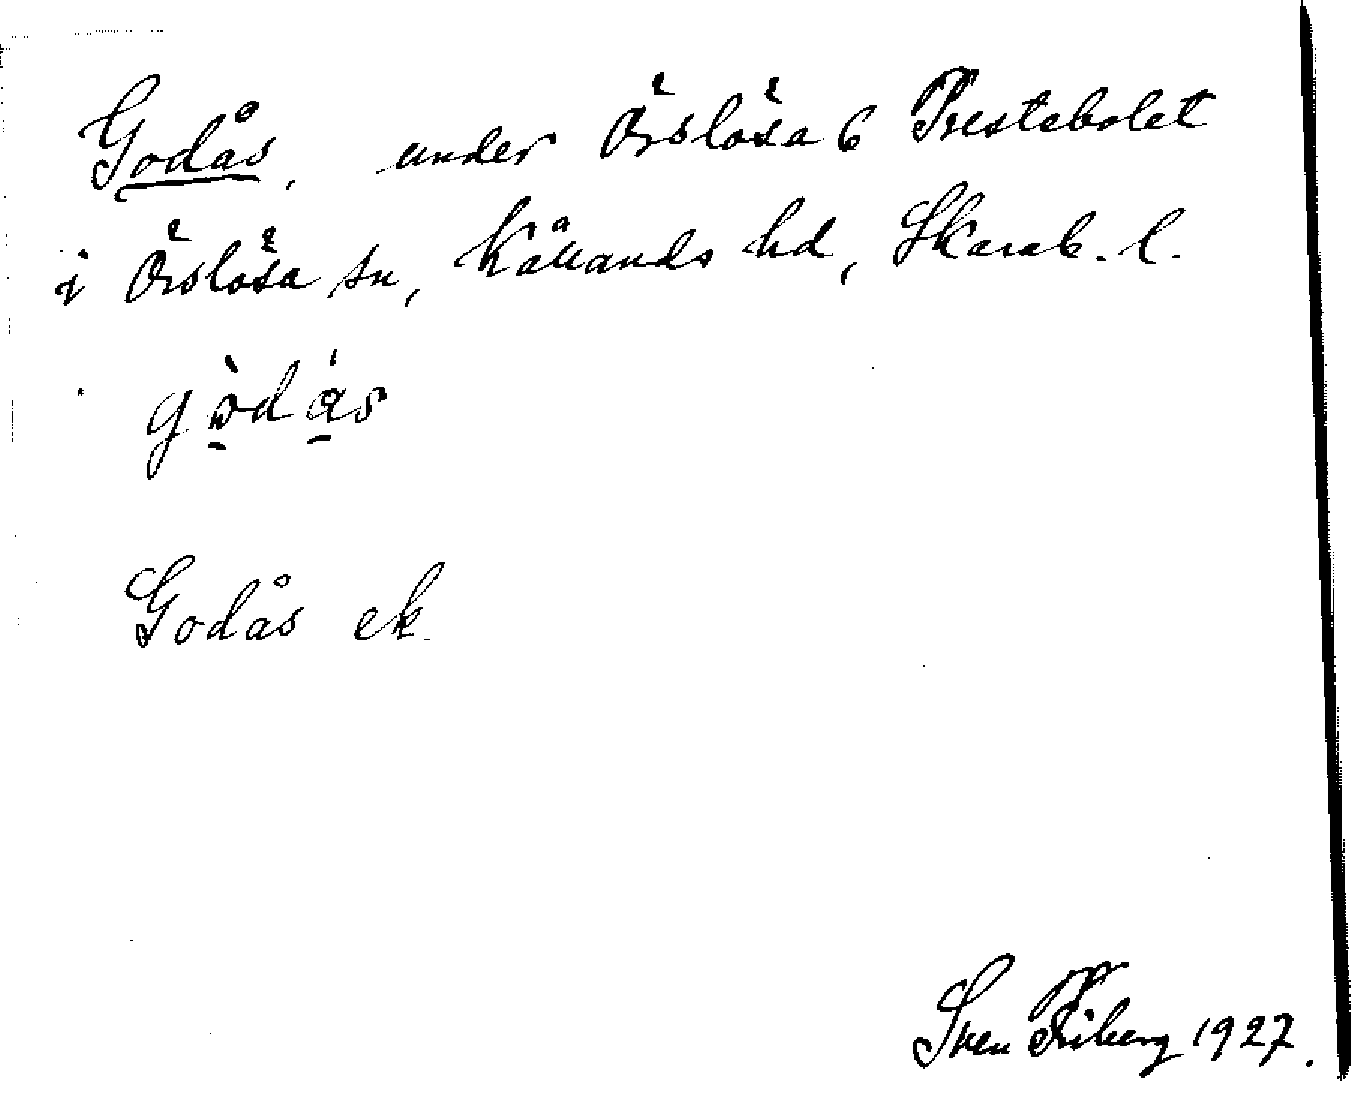 Godås, under Örslösa 6 Prestebolet
i Örslösa sn, Kållands hd, Skarab. l.
gòdás
Godås ek.
Sven Friberg 1927.